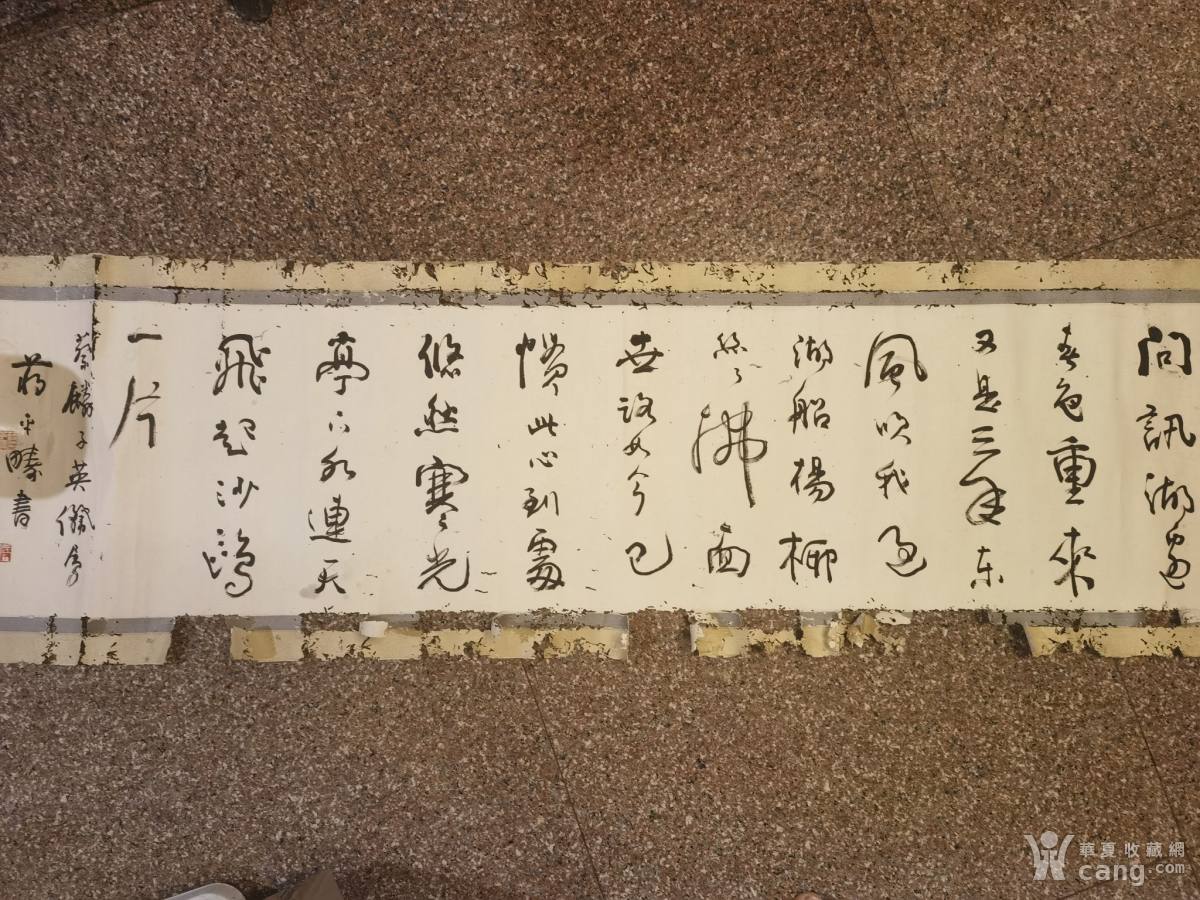 問訊湖邊
春色重來
又是三年东
風吹我過
湖船楊柳
絲々拂面
世路如今已
慣此心到處
悠然寒光
亭下水連天
飛起沙鷗
一片
麟子英儷屬
蔣平疇書
華夏收藏網
cang.com